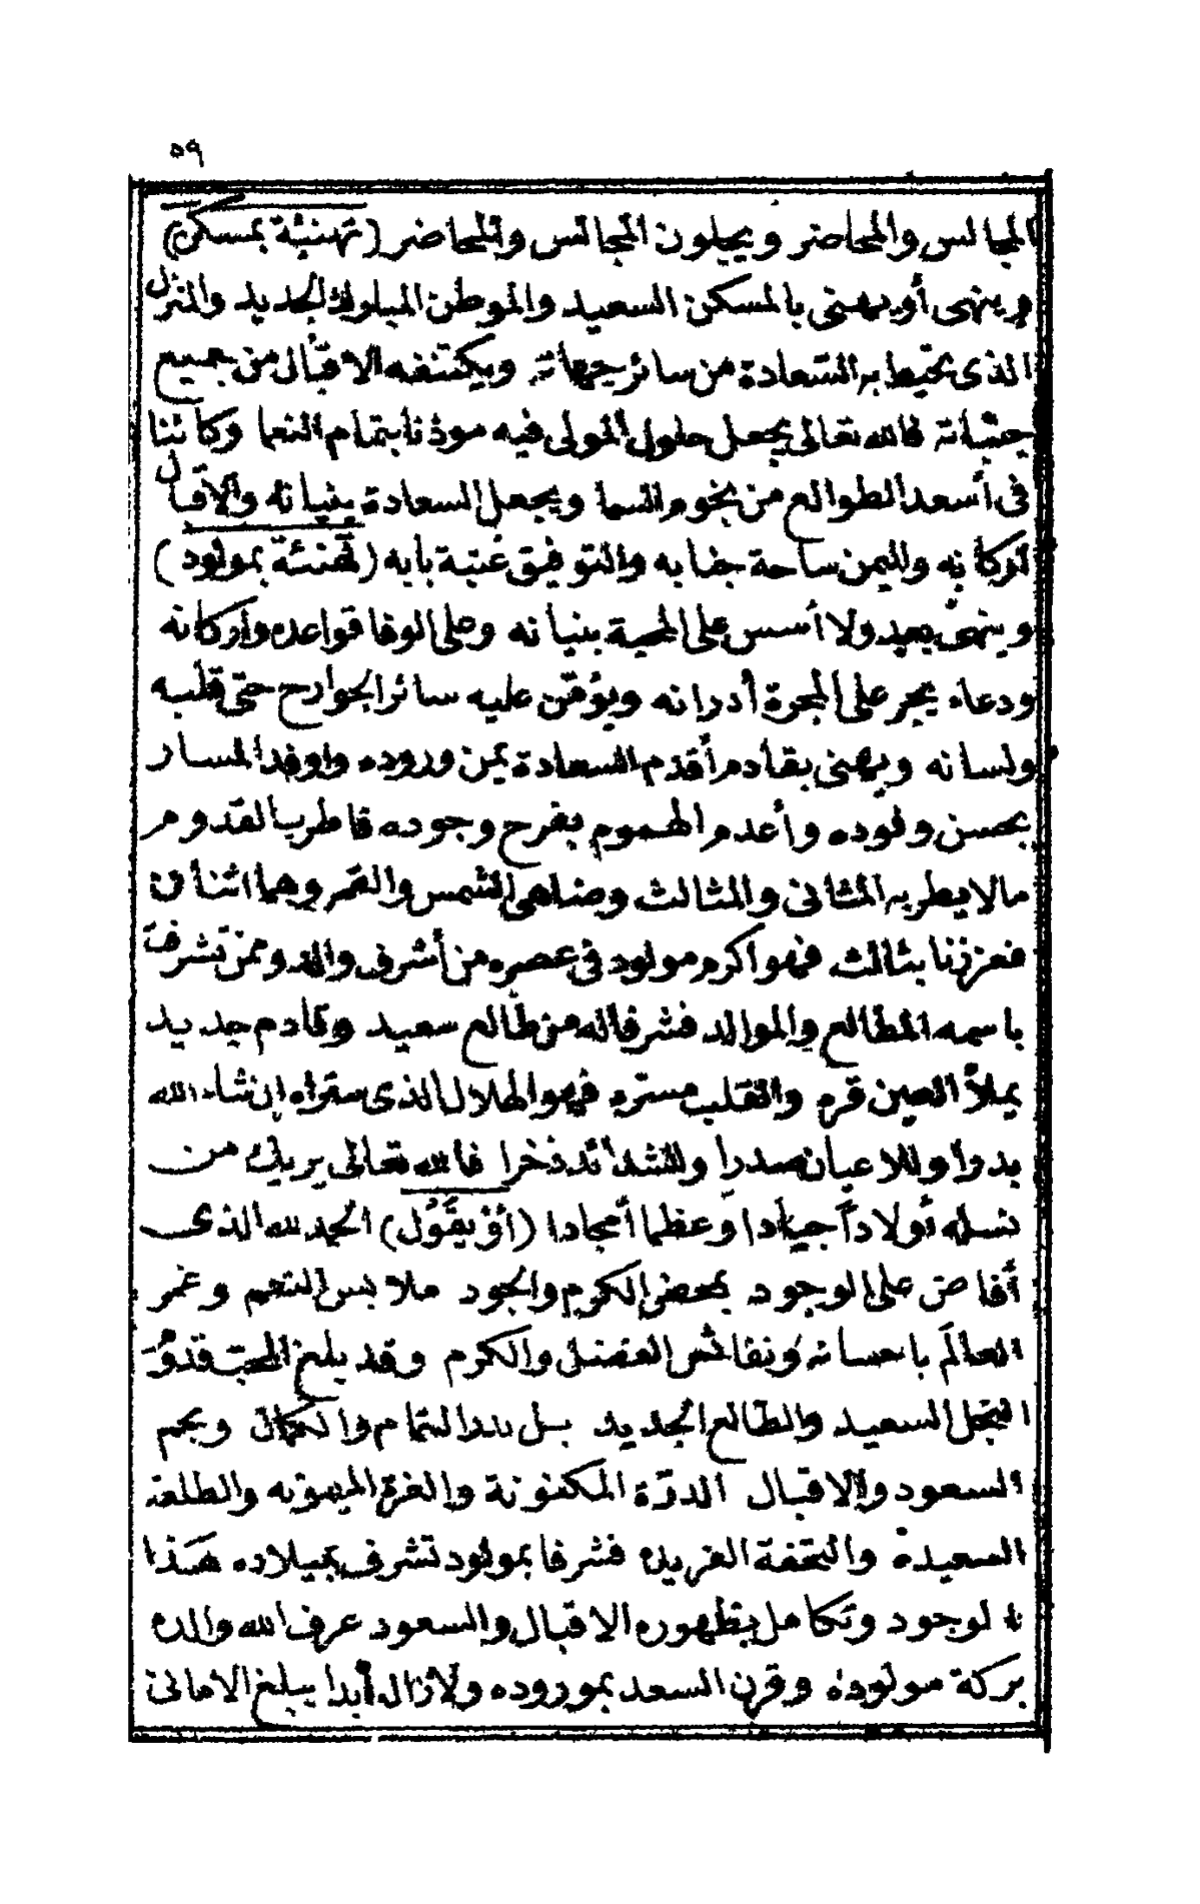 ٥٩
المجالس والمحاضر ويجلون المجالس والمحاضر (تهنئة بمسكن)
وينهى أو يهنى بالمسكن السعيد والموطن المبلوك الجديد والمنزل
الذى تحيط به السعادة من سائر جهاته ويكتنفه الاقبال من جميع
جنباته فالله تعالى يجعل حلول المولى فيه موذنا بتمام النعما وكائنا
فى أسعد الطوالع من نجوم السما ويجعل السعادة بنيانه والاقبال
أركانه واليمن ساحة جنابه والتوفيق عتبة بابه (تهنئة بمولود)
وينهى بعيد ولا أسس على المحبة بنيانه وعلى الوفا قواعده وأركانه
ودعاء يجر على المجرة أدرانه ويؤمن عليه سائر الجوارح حتى قلبه
ولسانه ويهنى بقادم أقدم السعادة بمن وروده واوفد المسار
بحسن وفوده وأعدم الهموم بفرح وجوده فاطرب القدوم
مالا يطر به المثانى والمثالث وضاهى الشمس والقمر وهما اثنان
فعززنا بثالث فهو اكرم مولود فى عصره من أشرف والد ومن تشرفت
باسمه المطالع والموالد فشرفاله من طالع سعيد وقادم جديد
يملأ العين قره والقلب مسره فهو الهلال الذى ستراه إن شاء الله
بدرا وللاعيان صدرا وللشدائد ذخرا فالله تعالى يريك من
نسله أولاداً جيادا وعظما أمجادا (أو يقول) الحمد لله الذى
أفاض على الوجود بمحض الكرم والجود ملابس النعم وغمر
العالم باحسانه ونفائس الفضل والكرم وقد بلغ المحب قدوم
النجل السعيد والطالع الجديد بل بدر التمام والكمال ونجم
السعود والاقبال الدرة المكنونة والغرة الميمونه والطلعة
السعيدة والتحفة الفريده فشرفا بمولود تشرف بميلاده هذا
الوجود وتكامل بظهوره الاقبال والسعود عرف الله والده
بركة مولوده وقرن السعد بموروده ولازال أبدا يبلغ الامانى